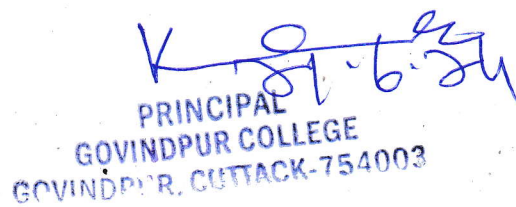 PRINCIPAL
GOVINDPUR COLLEGE
GOVINDPUR, CUTTACK-754003